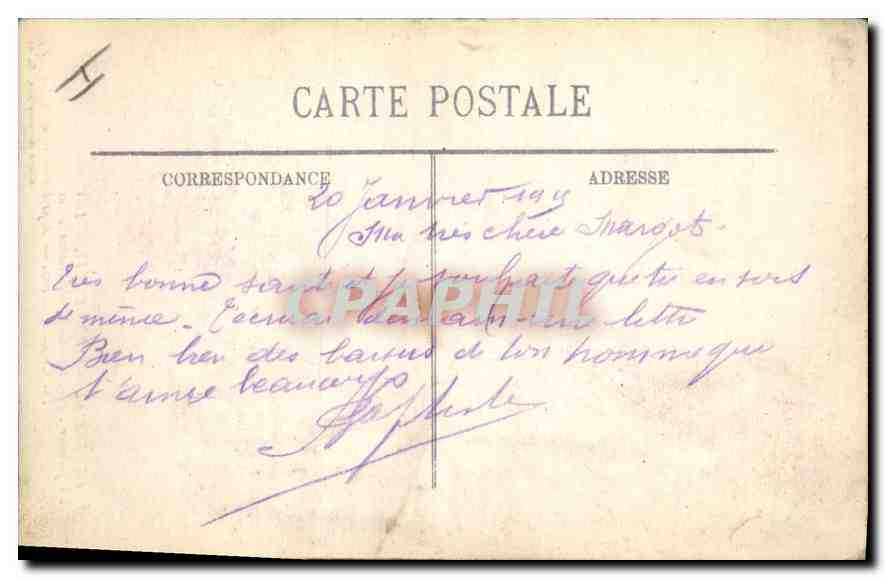 CARTE POSTALE
CORRESPONDANCE
ADRESSE
20 Janvier 1915
Ma très chère Margot.
Très bonne santé et je souhaite que tu en sois
de même. T'écrirai demain une lettre
Bien des baisers de ton homme que
t'aime beaucoup
Baptiste
CPAPHIL